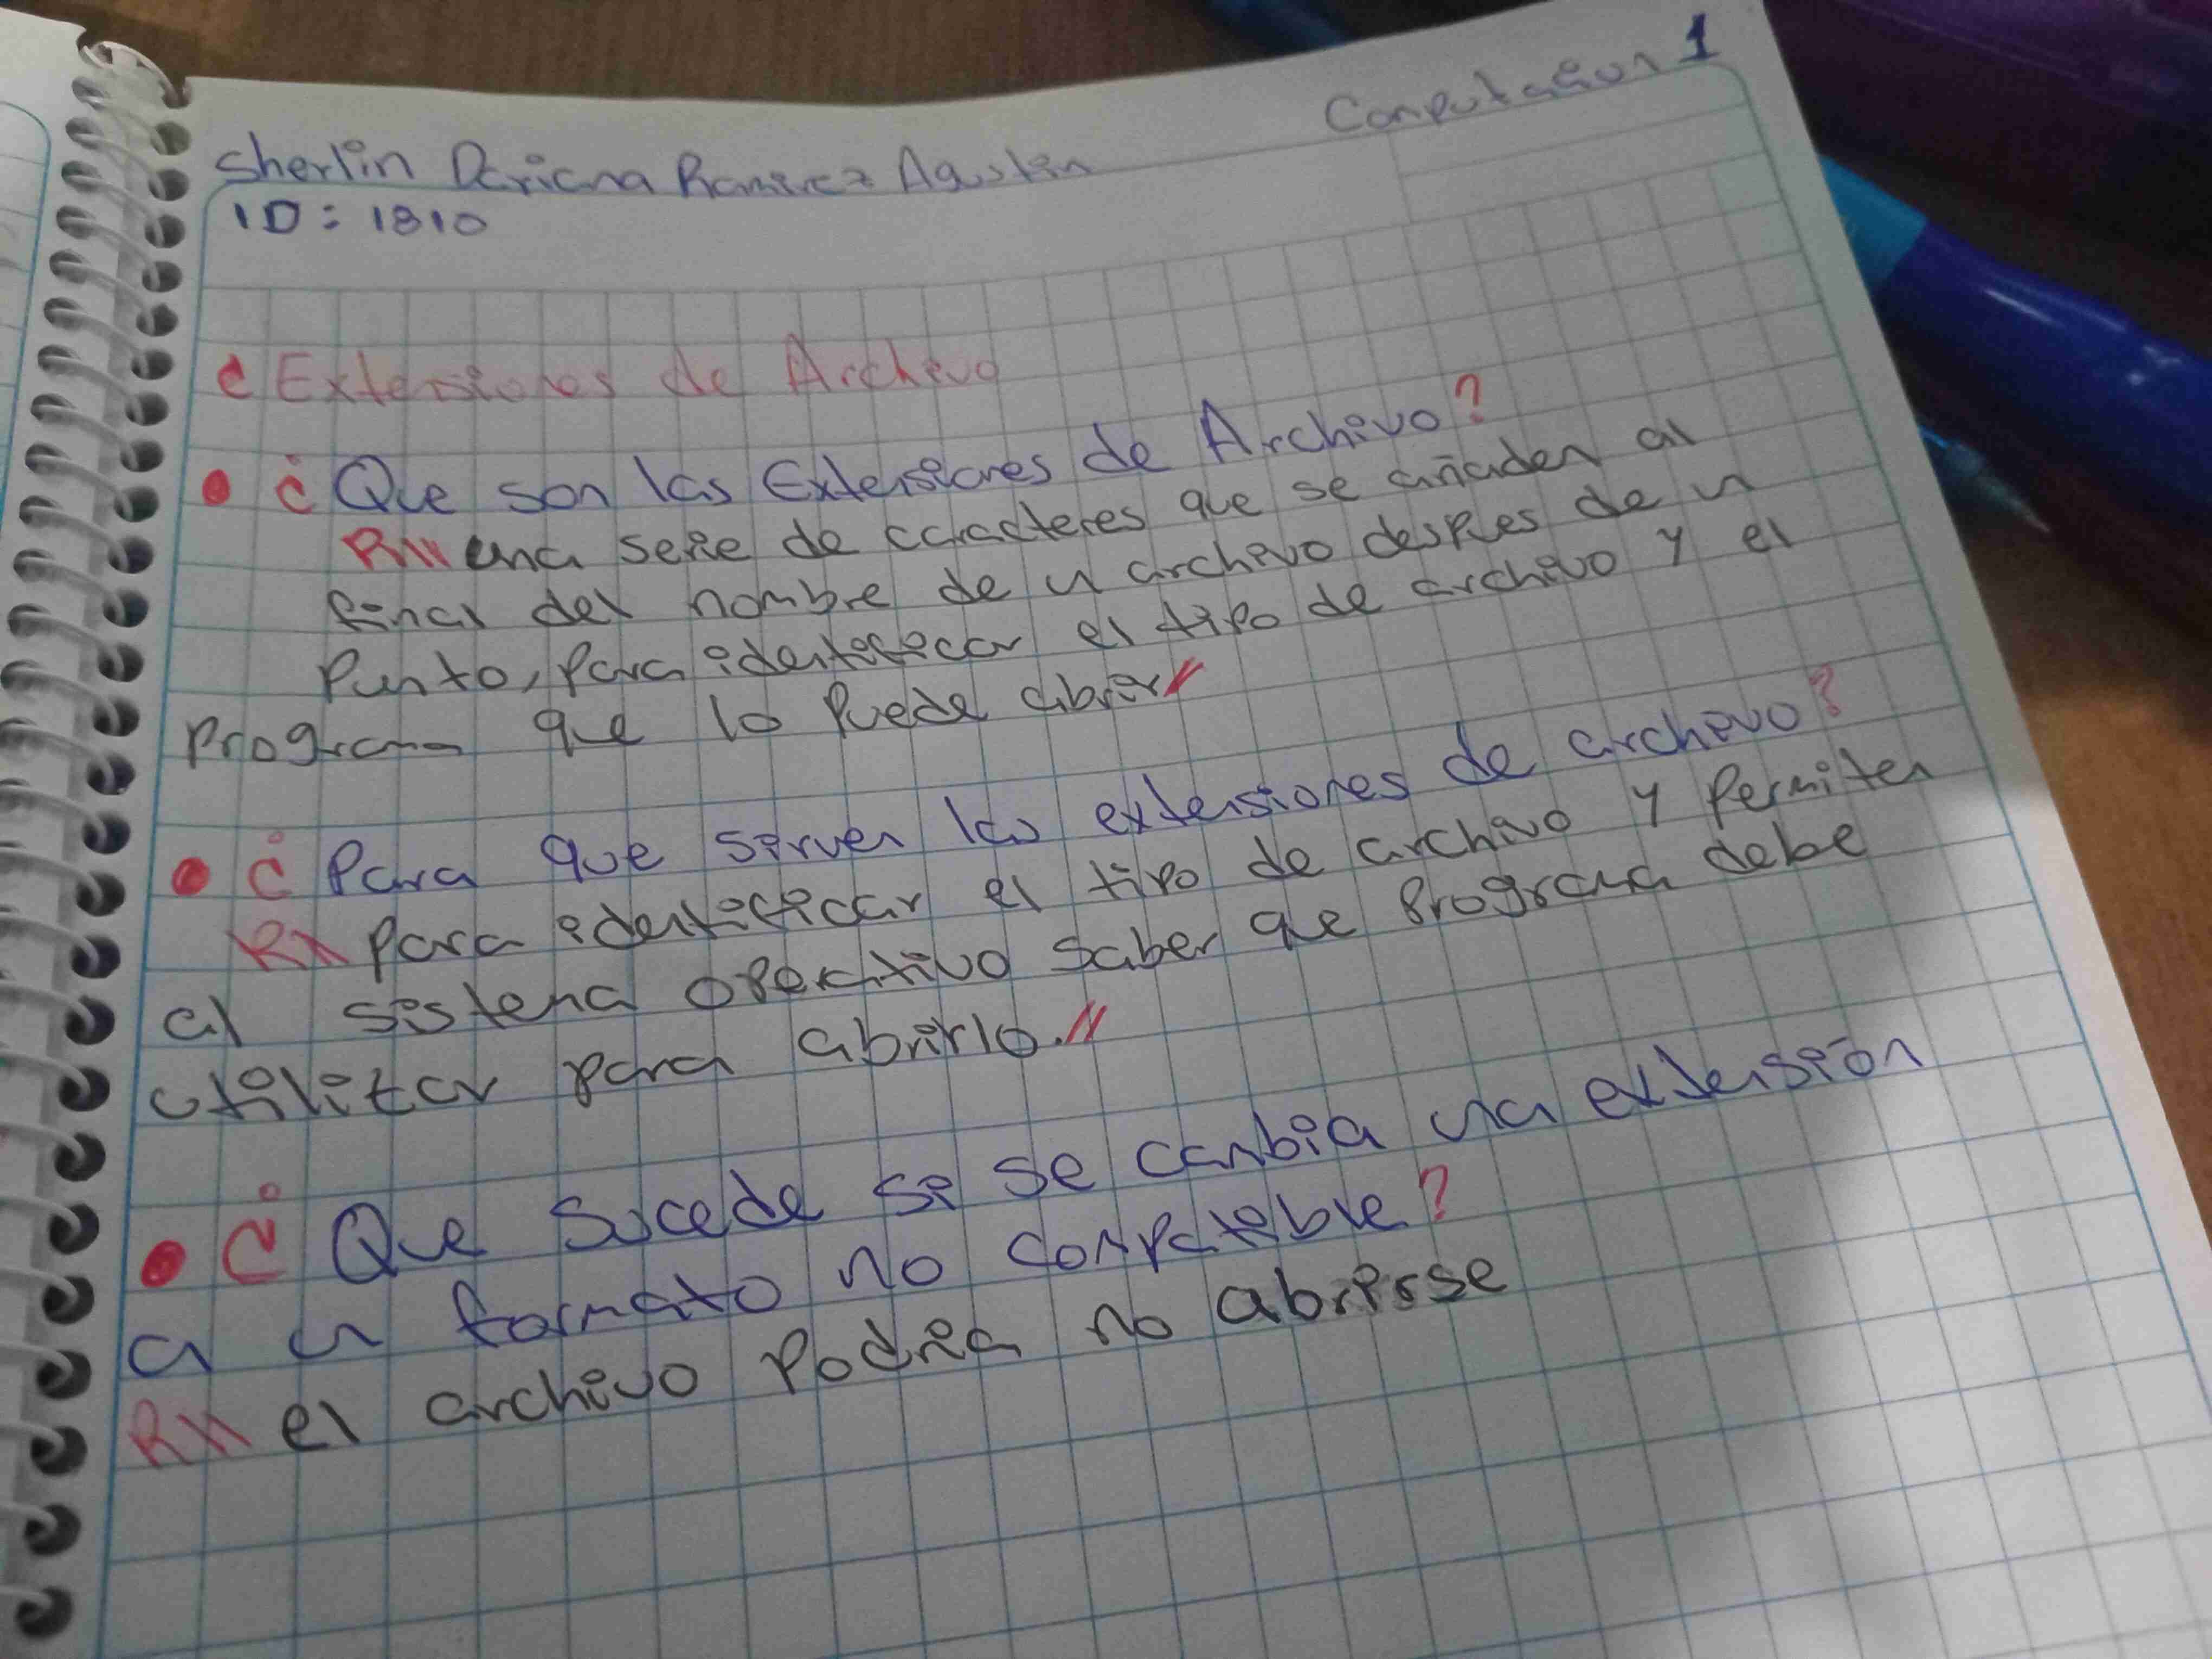 Computación 1
Sherlin Dariana Ramirez Agustin
ID: 1810
Extensiones de Archivo
• ¿Que son las Extensiones de Archivo?
R// una serie de caracteres que se añaden al
final del nombre de un archivo despues de un
Punto, Para identificar el tipo de archivo y el
Programa que lo Puede abrir//
• ¿Para que sirven las extensiones de archivo?
R// Para identificar el tipo de archivo y Permiten
al sistema operativo saber que Programa debe
utilizar para abrirlo.//
• ¿Que sucede si se cambia una extensión
a un formato no compatible?
R// el archivo Podria no abrirse